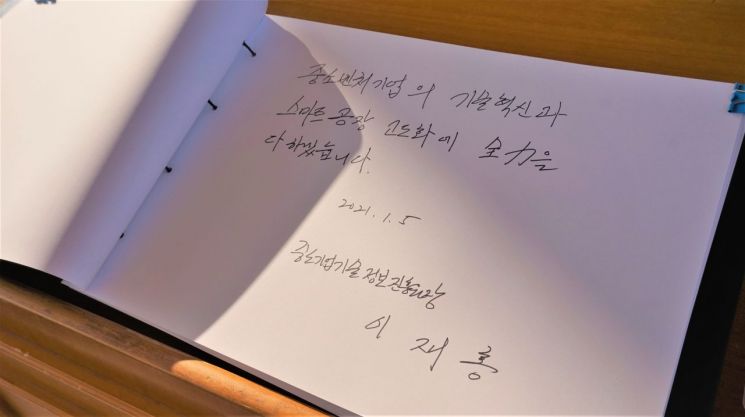 중소벤처기업의 기술혁신과
스마트공장 고도화에 全力을
다하겠습니다.
2021.1.5
중소기업기술정보진흥원장
이재홍